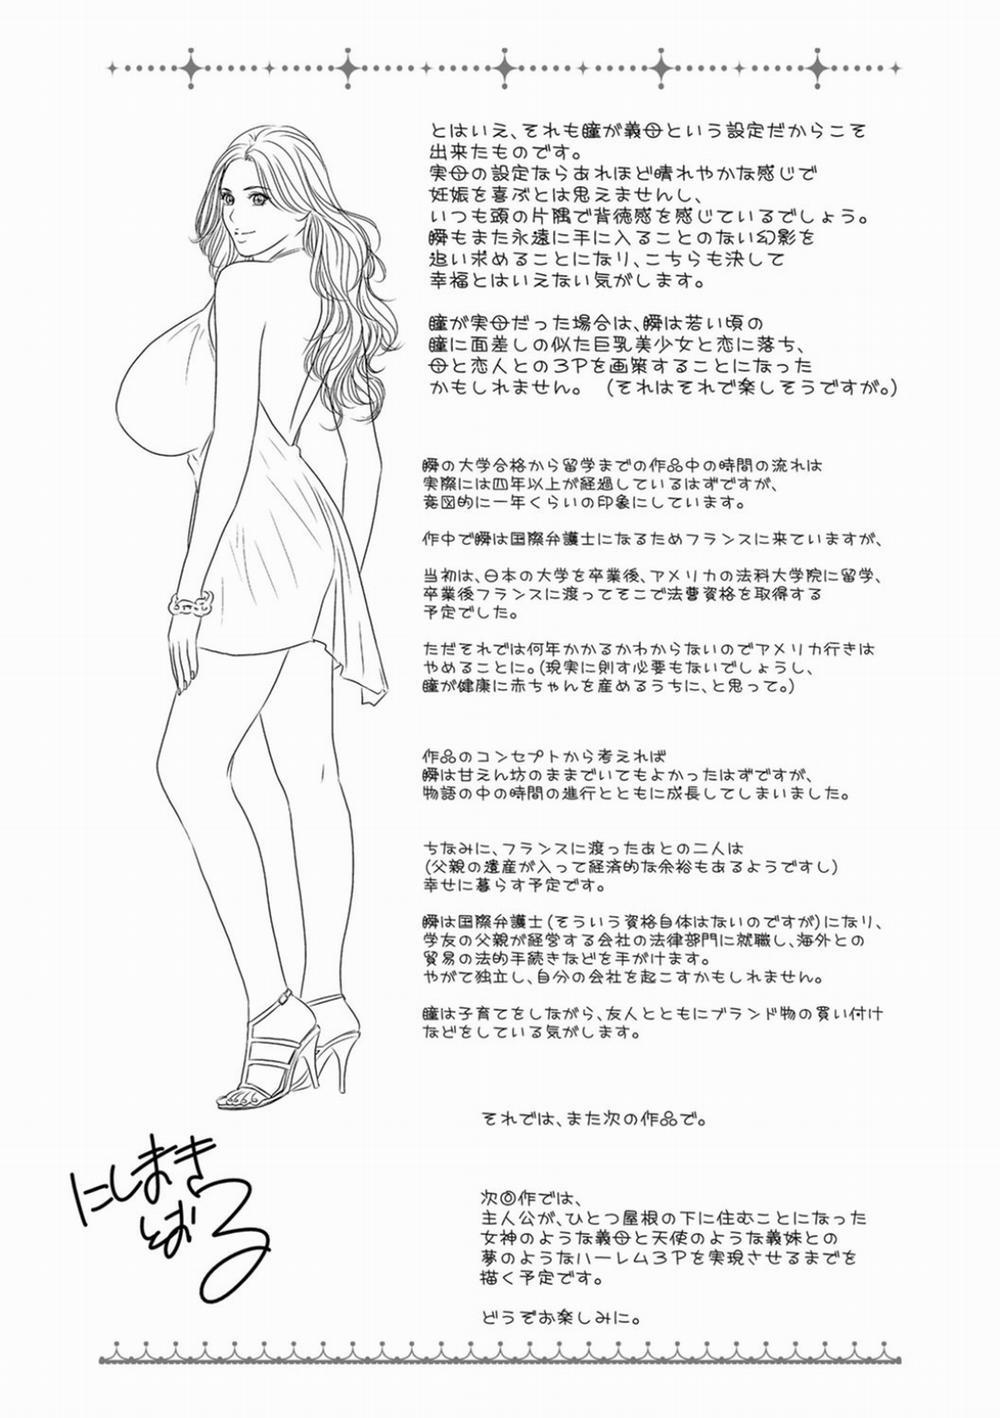 とはいえ、それも瞳が義母という設定だからこそ
出来たものです。
実母の設定ならあれほど晴れやかな感じで
妊娠を喜ぶとは思えませんし、
いつも頭の片隅で背徳感を感じているでしょう。
瞬もまた永遠に手に入ることのない幻影を
追い求めることになり、こちらも決して
幸福とはいえない気がします。
瞳が実母だった場合は、瞬は若い頃の
瞳に面差しの似た巨乳美少女と恋に落ち、
母と恋人との3Pを画策することになった
かもしれません。　(それはそれで楽しそうですが。)
瞬の大学合格から留学までの作品中の時間の流れは
実際には四年以上が経過しているはずですが、
意図的に一年くらいの印象にしています。
作中で瞬は国際弁護士になるためフランスに来ていますが、
当初は、日本の大学を卒業後、アメリカの法科大学院に留学、
卒業後フランスに渡ってそこで法曹資格を取得する
予定でした。
ただそれでは何年かかるかわからないのでアメリカ行きは
やめることに。(現実に則す必要もないでしょうし、
瞳が健康に赤ちゃんを産めるうちに、と思って。)
作品のコンセプトから考えれば
瞬は甘えん坊のままでいてもよかったはずですが、
物語の中の時間の進行とともに成長してしまいました。
ちなみに、フランスに渡ったあとの二人は
(父親の遺産が入って経済的な余裕もあるようですし)
幸せに暮らす予定です。
瞬は国際弁護士(そういう資格自体はないのですが)になり、
学友の父親が経営する会社の法律部門に就職し、海外との
貿易の法的手続きなどを手がけます。
やがて独立し、自分の会社を起こすかもしれません。
瞳は子育てをしながら、友人とともにブランド物の買い付け
などをしている気がします。
それでは、また次の作品で。
にしまき
とおる
次回作では、
主人公が、ひとつ屋根の下に住むことになった
女神のような義母と天使のような義妹との
夢のようなハーレム3Pを実現させるまでを
描く予定です。
どうぞお楽しみに。